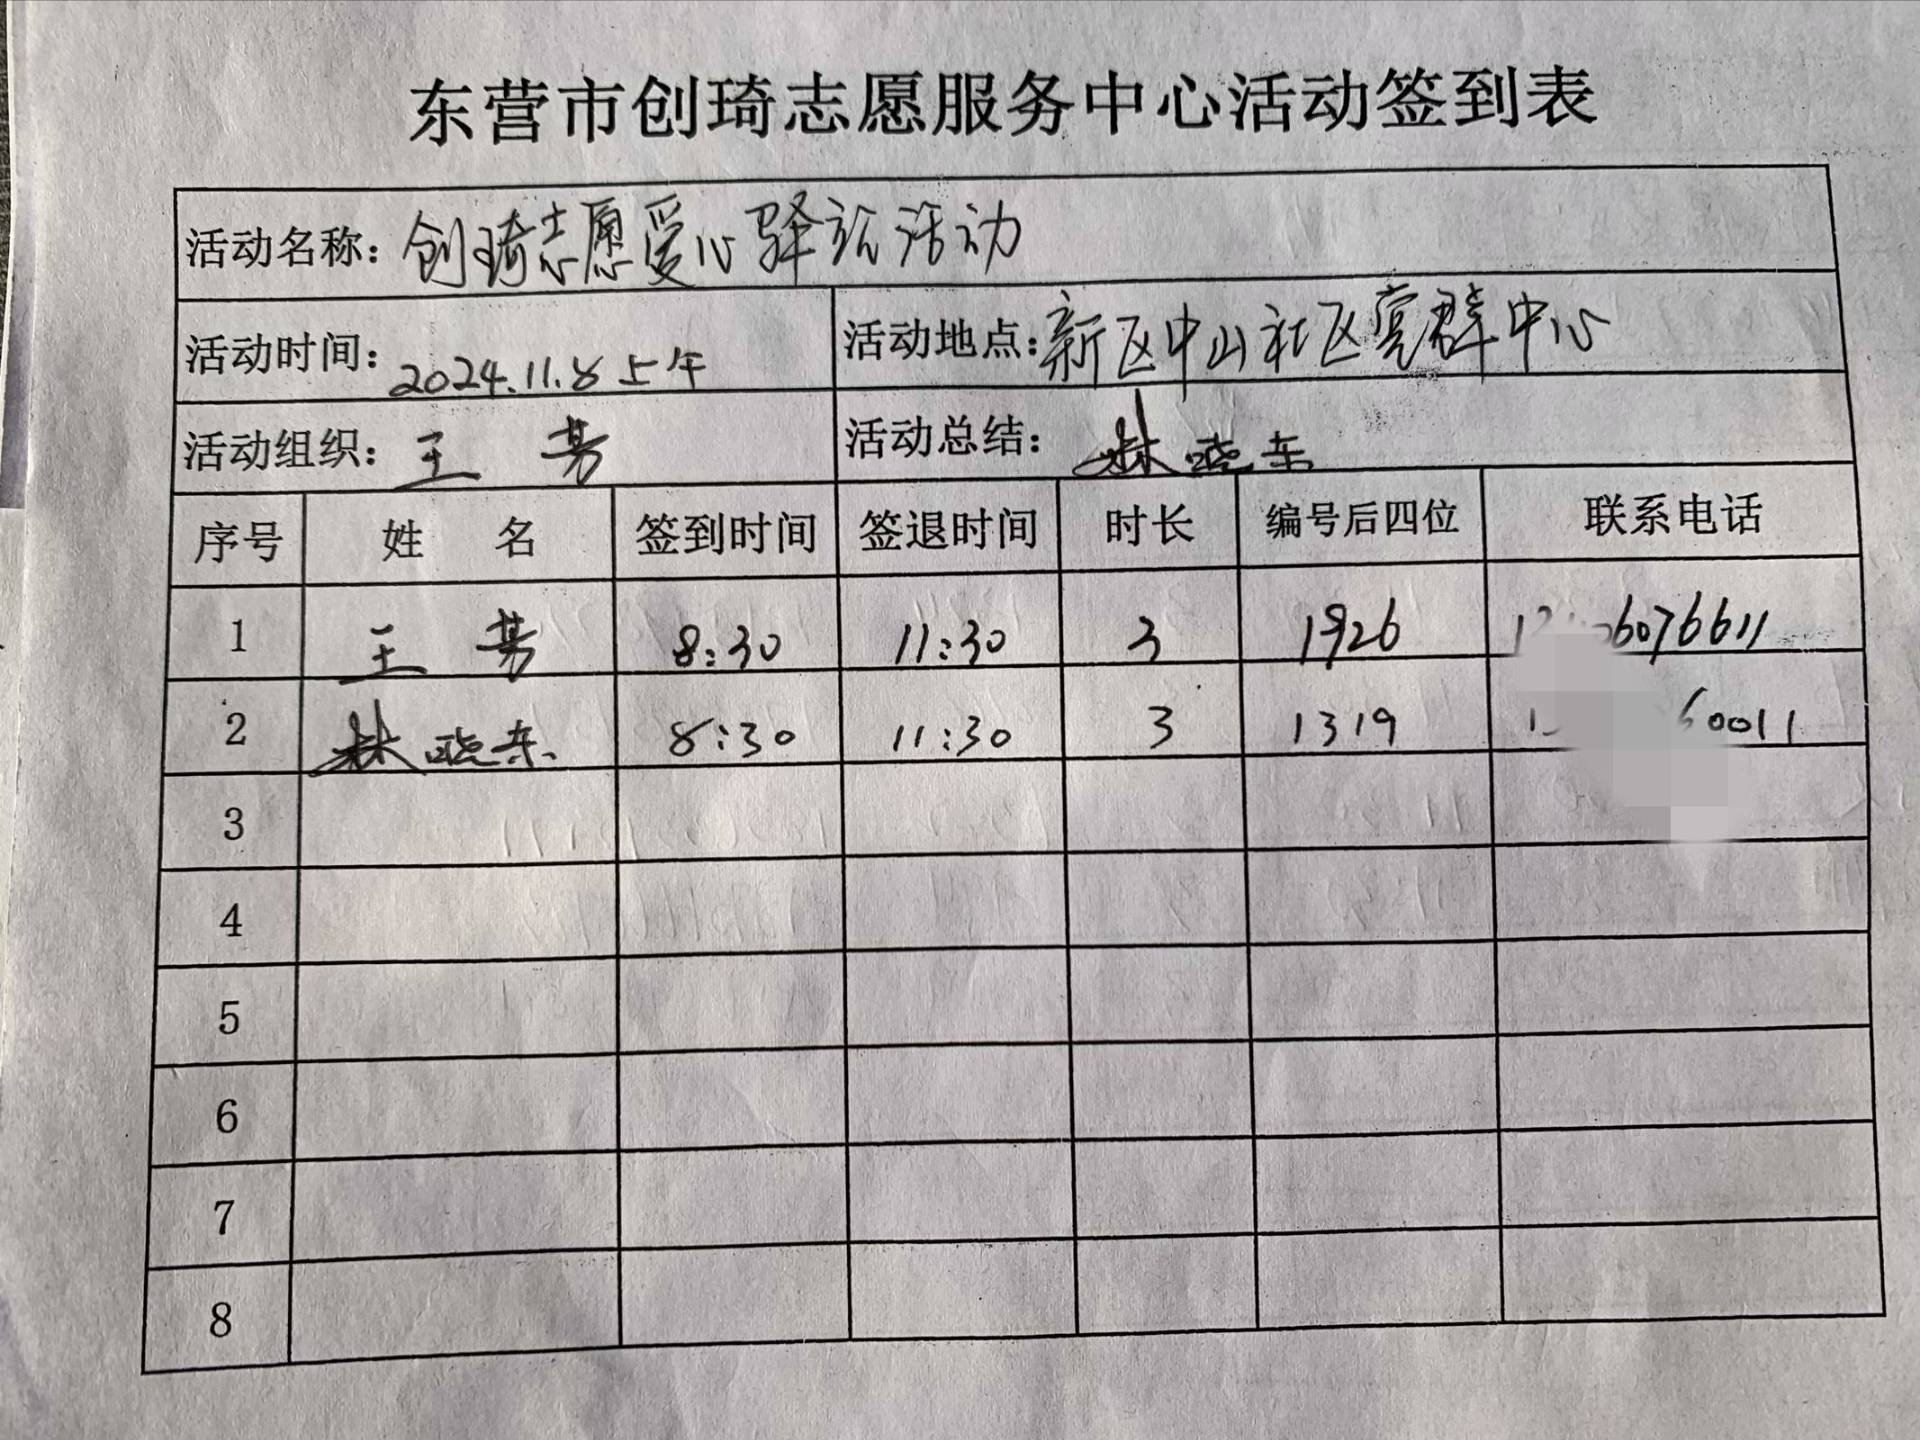 东营市创琦志愿服务中心活动签到表
活动名称：创琦志愿爱心驿站活动
活动时间：2024.11.8上午 活动地点：新区中山社区党群中心
活动组织：王芳 活动总结：林晓东
序号 姓名 签到时间 签退时间 时长 编号后四位 联系电话
1 王芳 8:30 11:30 3 1926 6076611
2 林晓东 8:30 11:30 3 1319 60011
3
4
5
6
7
8